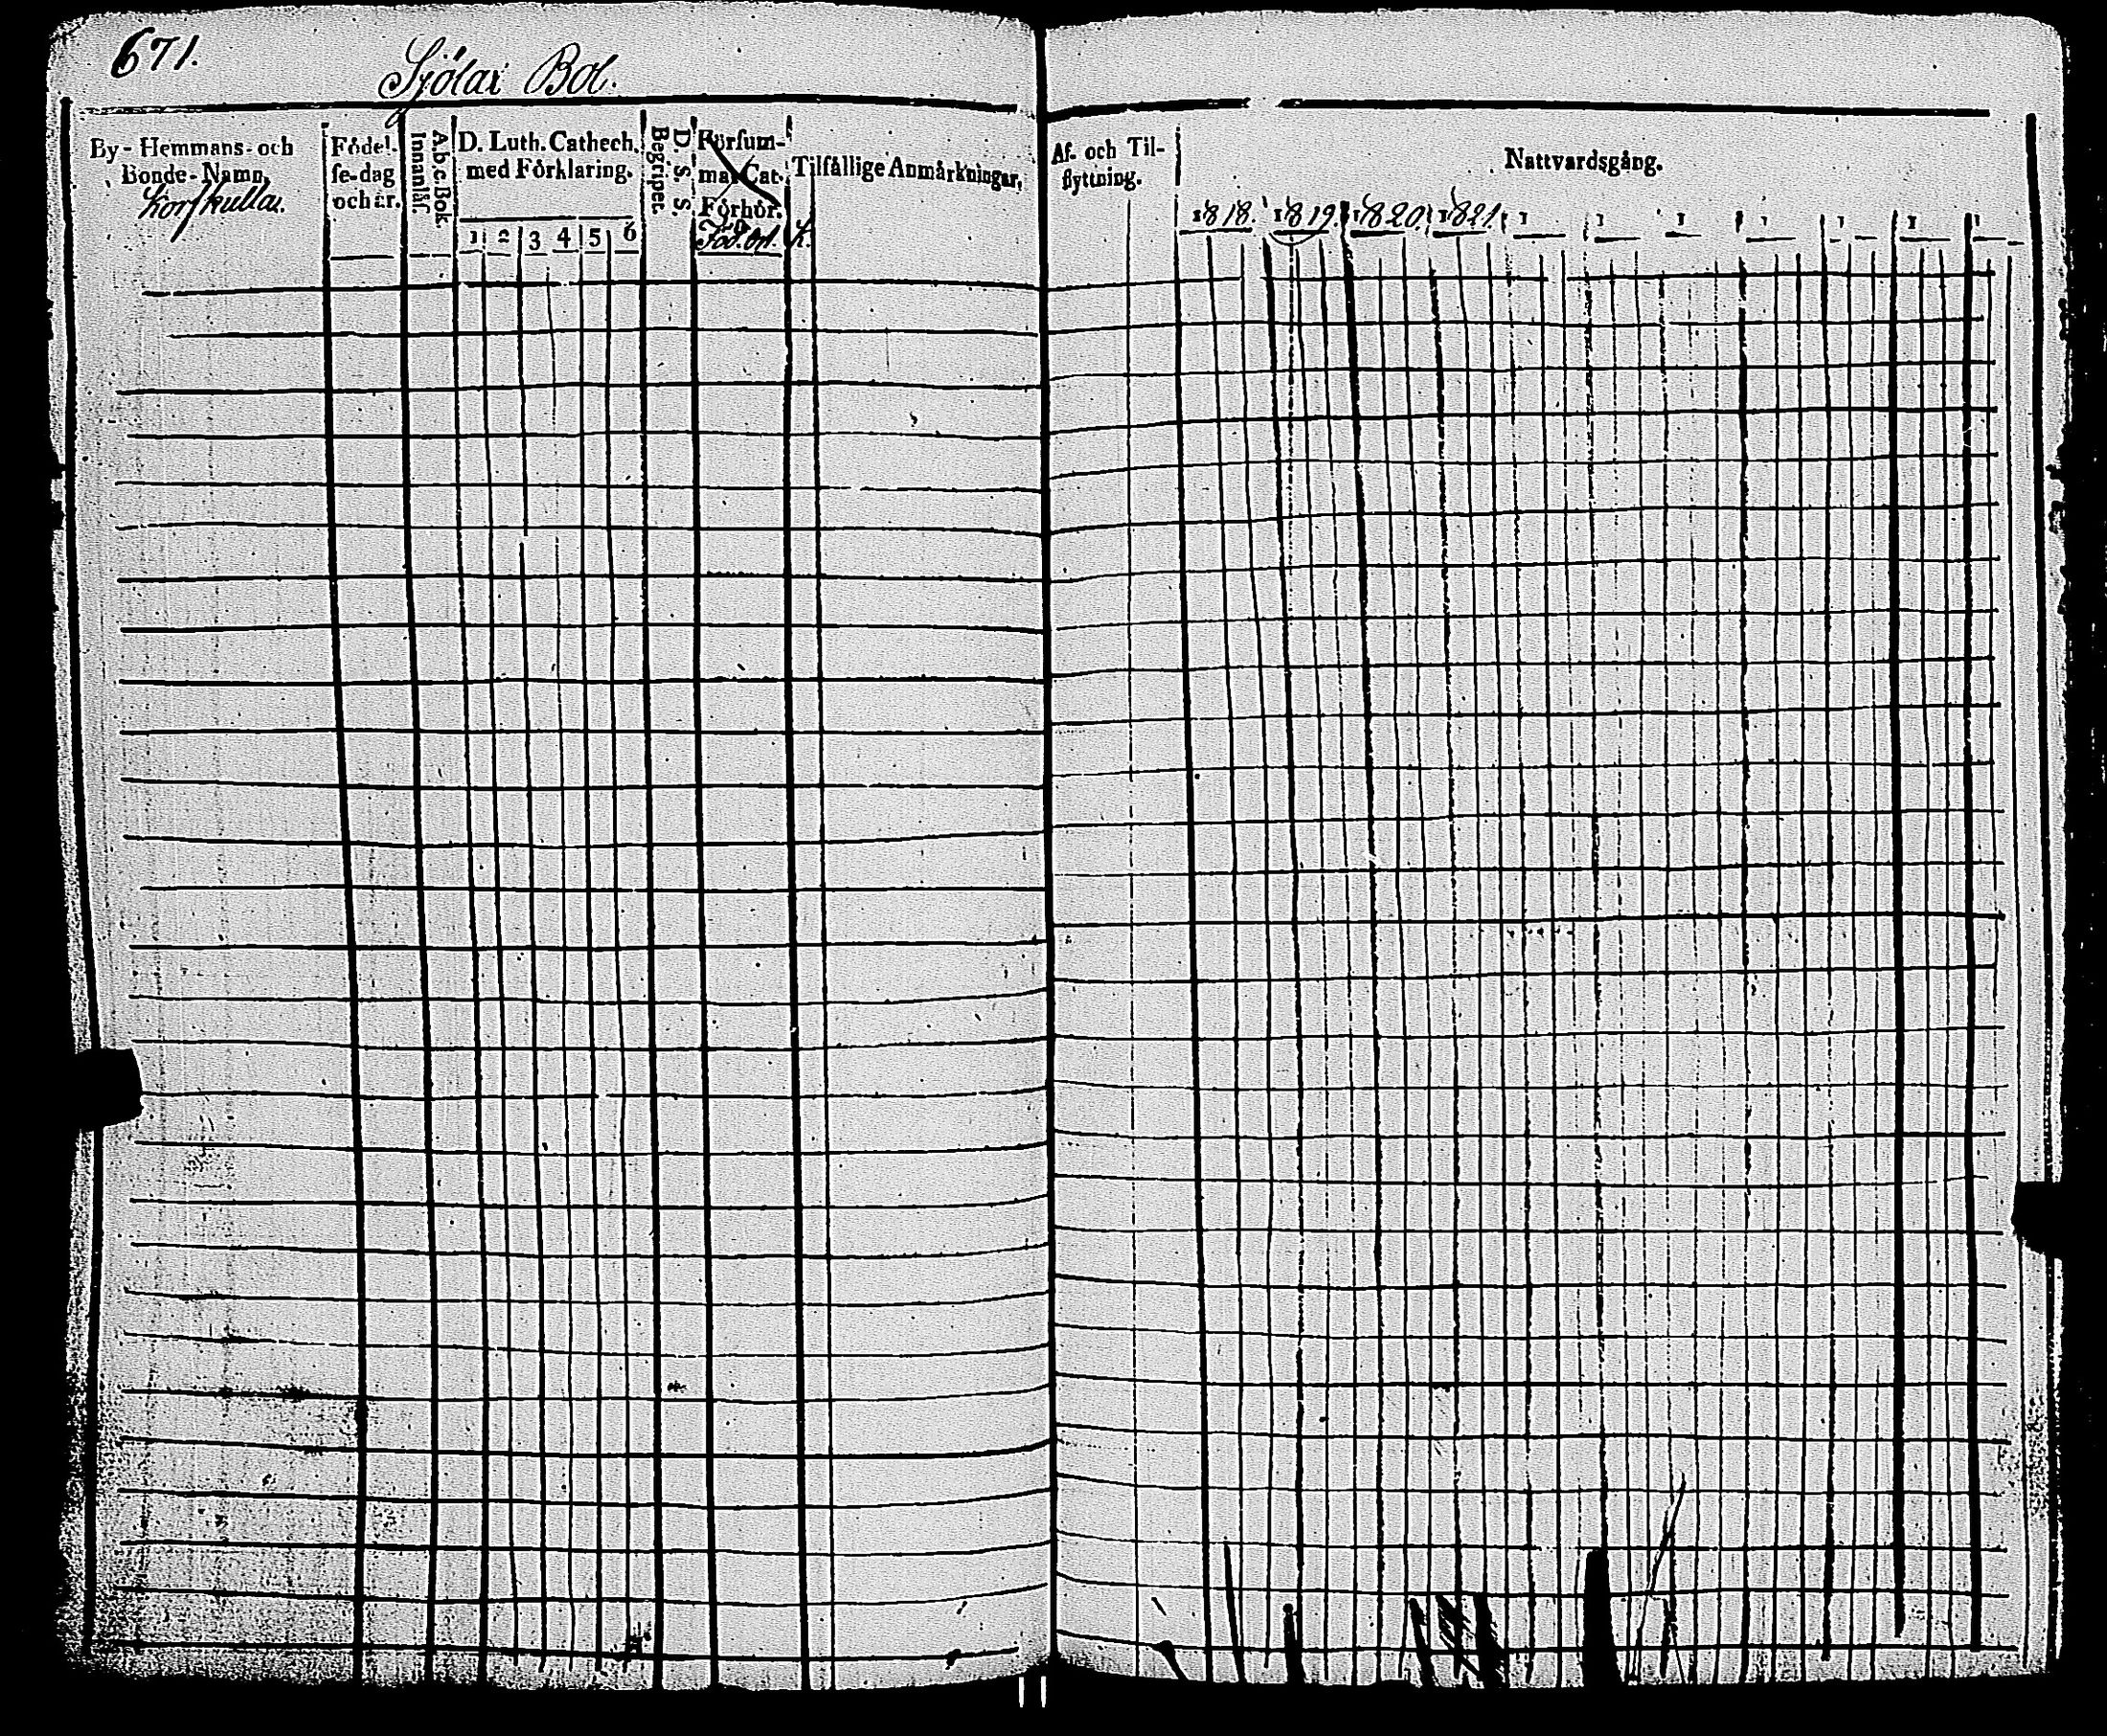 671.
Sjölax Bol.
By-Hemmans-och
Bonde-Namn.
Korskullas.
Födel-
se-dag
och år.
A.b.c.Bok.
Innanläs.
D. Luth. Cathech.
med Förklaring.
1 2 3 4 5 6
D. S. S.
Begriper.
Försum-
mat Cat.
Förhör.
Föd. ort.
K.
Tilfällige Anmärkningar.
Af- och Til-
flyttning.
Nattvardsgång.
1818. 1819. 1820. 1821. 1 1 1 1 1 1 1